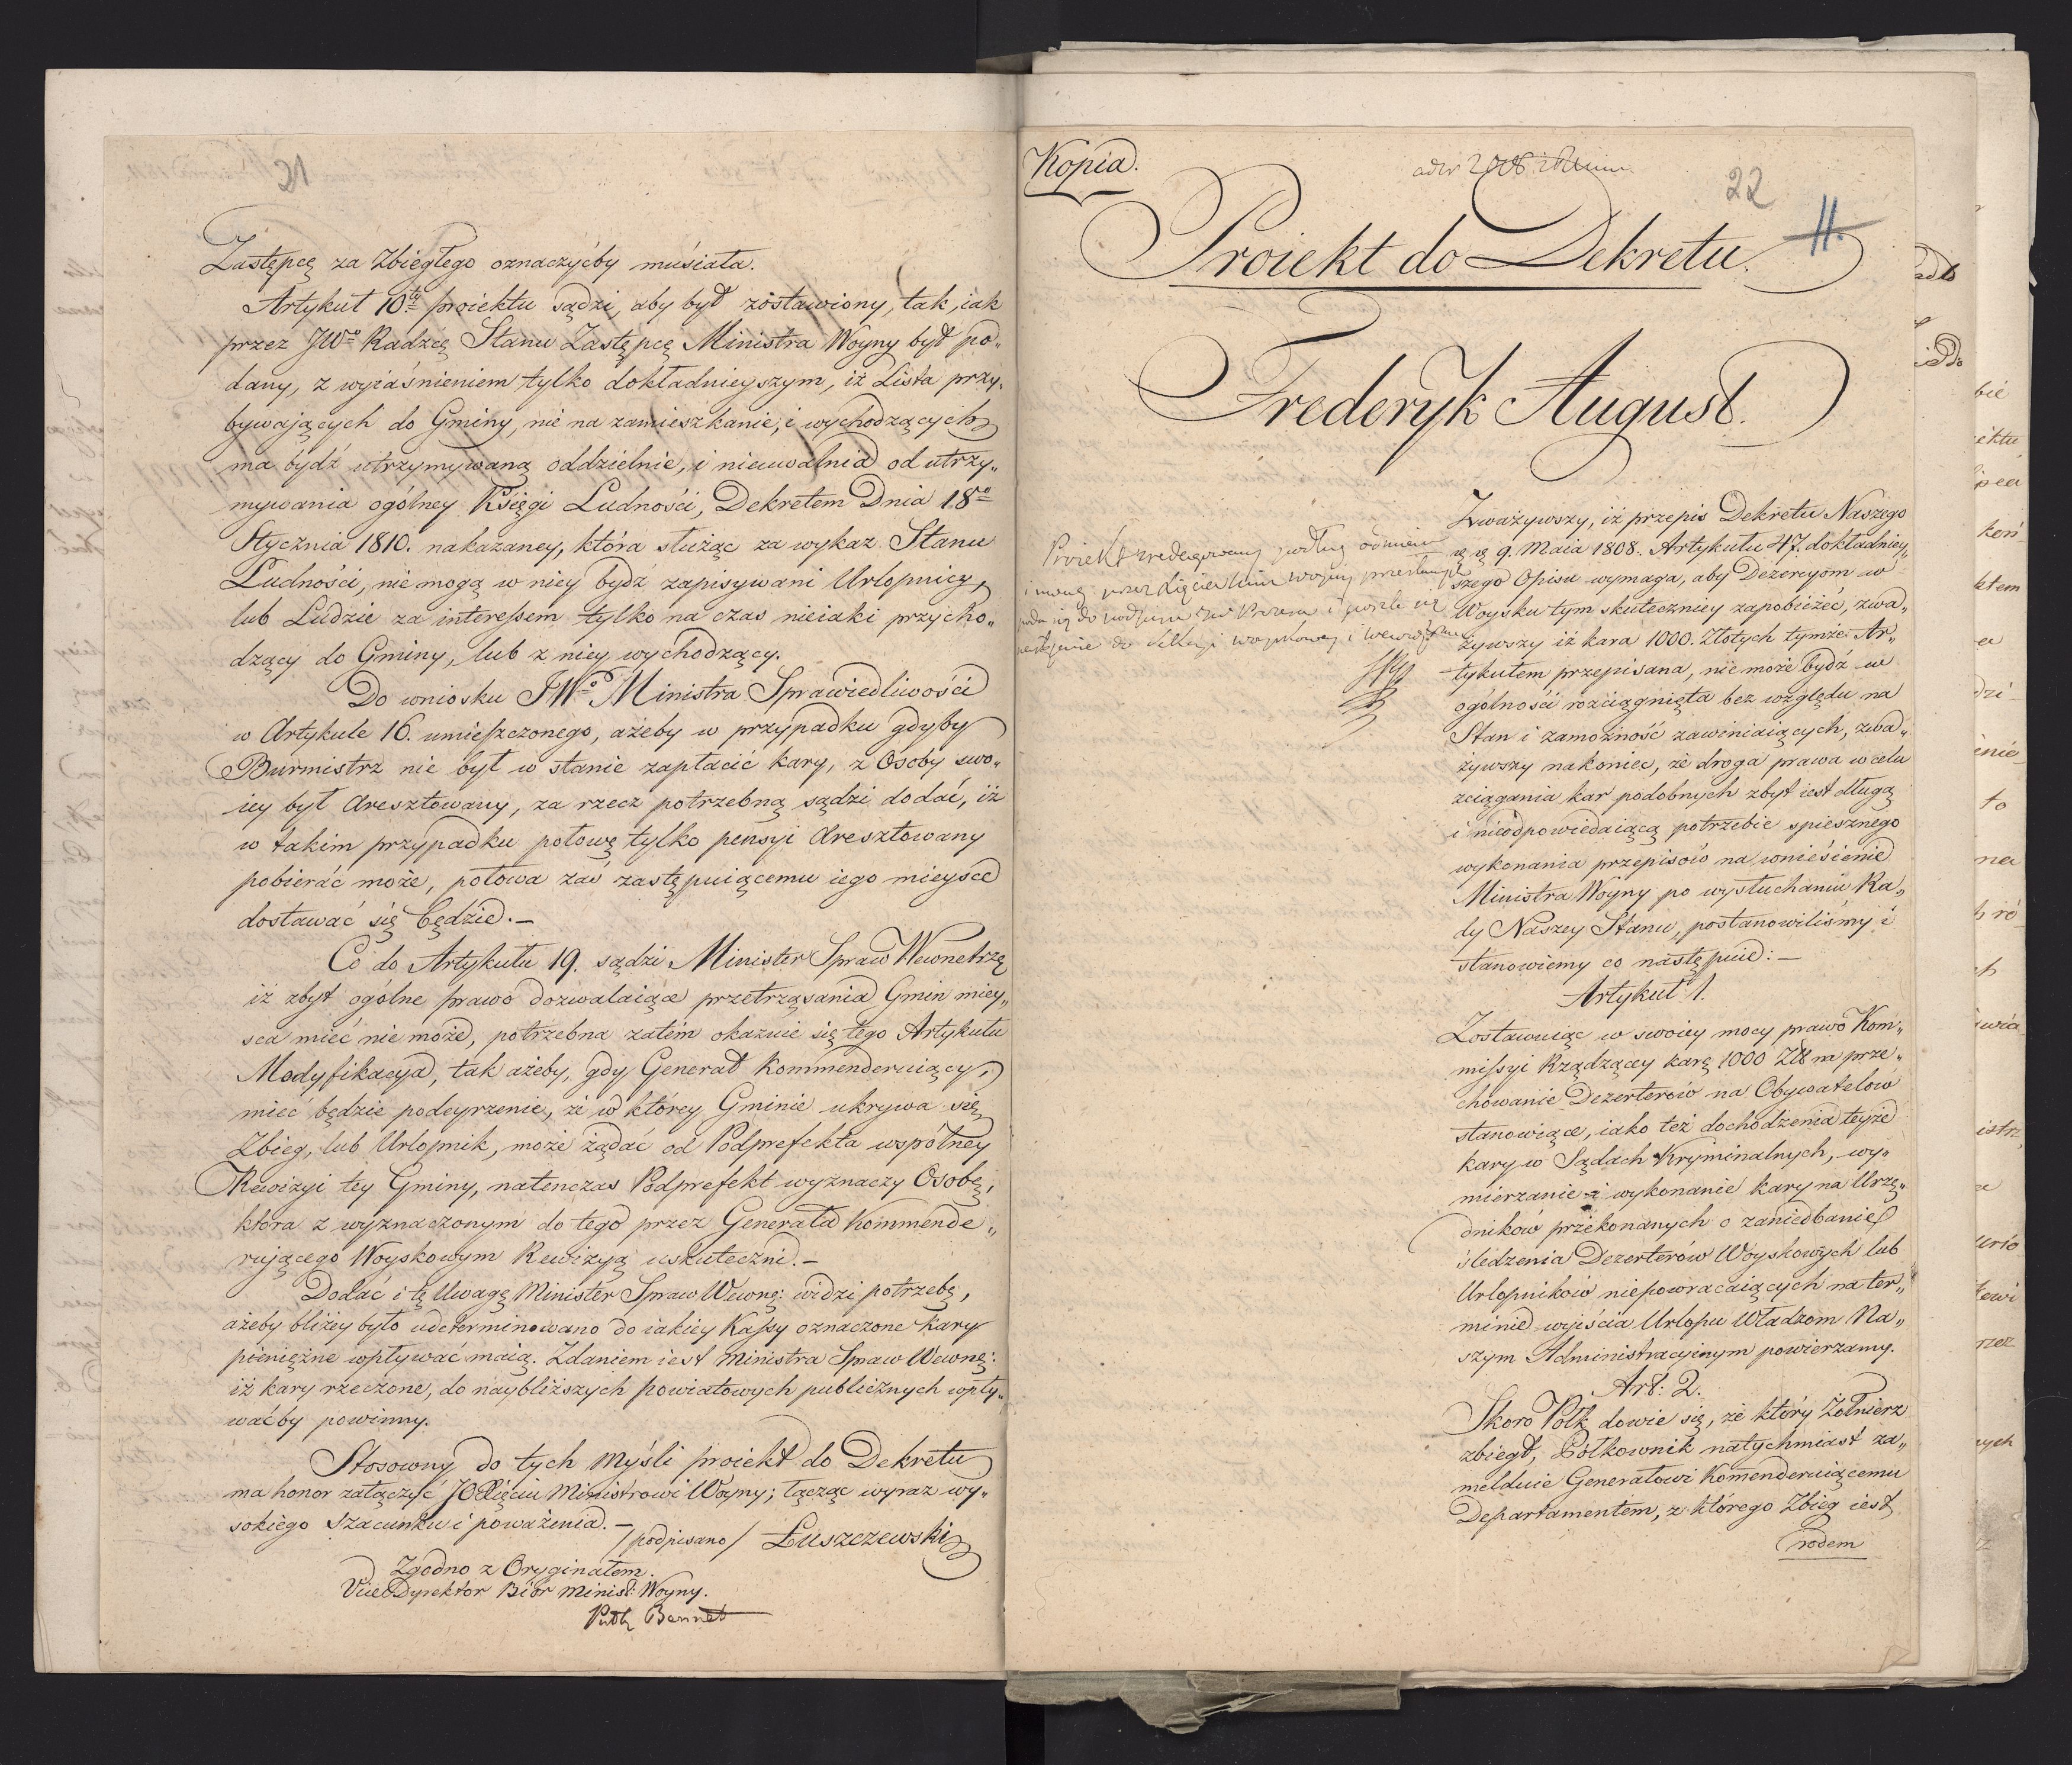 21
Zastępcę za Zbiegłego oznaczyćby musiała.
Artykuł 10ty proiektu sądzi, aby był zostawiony, tak, iak
przez JWo Radzcę Stanu Zastępcę Ministra Woyny był po„
dany, z wyiaśnieniem tylko dokładnieyszym, iż Lista przy„
bywających do Gminy, nie na zamieszkanie, i wychodzących
ma bydź utrzymywaną oddzielnie, i nieuwalnia od utrzy„
mywania ogólney Księgi Ludności, Dekretem Dnia 18o
Stycznia 1810. nakazaney, która służąc za wykaz Stanu
Ludności, nie mogą w niey bydź zapisywani Urlopnicy,
lub Ludzie za interessem tylko na czas nieiaki przycho„
dzący do Gminy, lub z niey wychodzący.
Do wniosku JWo Ministra Sprawiedliwości
w Artykule 16. umieszczonego, ażeby w przypadku gdyby
Burmistrz nie był w stanie zapłacić kary, z Osoby swo„
iey był Aresztowany, za rzecz potrzebną sądzi dodać, iż
w takim przypadku połowę tylko pensyi Aresztowany
pobierać może, połowa zaś zastępuiącemu iego mieysce
dostawać się będzie.—
Co do Artykułu 19. sądzi Minister Spraw Wewnetrzę
iż zbyt ogólne prawo dozwalaiące przetrząsania Gmin miey„
sca mieć nie może, potrzebna zatim okazuie się tego Artykułu
Modyfikacya, tak ażeby, gdy Generał Kommenderuiący,
mieć będzie podeyrzenie, że w którey Gminie ukrywa się
Zbieg, lub Urlopnik, może żądać od Podprefekta wspólney
Rewizyi tey Gminy, natenczas Podprefekt wyznaczy Osobę,
która z wyznaczonym do tego przez Generała Kommende„
rującego Woyskowym Rewizyą uskuteczni.—
Dodać i tę Uwagę Minister Spraw Wewnę: widzi potrzebę,
ażeby bliżey było udeterminowano do iakiey Kassy oznaczone Kary
pieniężne wpływać maią. Zdaniem iest Ministra Spraw Wewnę:
iż kary rzeczone, do naybliższych powiatowych publicznych wpły„
waćby powinny.
Stosowny do tych myśli proiekt do Dekretu
ma honor załączyć JO Xięciu Ministrowi Woyny; łącząc wyraz wy„
sokiego szacunku i poważenia.—
/podpisano/ Łuszczewski
Zgodno z Oryginałem.
Vice Dyrektor Biór Minist: Woyny.
Bennet
Kopia.
22
11.
Proiekt do Dekretu.
Frederyk August.
Proiekt zredagowany podług odmian
i uwag przez Xięcia Woyny
woyskowey i
Zważywszy, iż przepis Dekretu Naszego
9. Maia 1808. Artykułu 47. dokładniey„
szego Opisu wymaga, aby Dezercyom w
Woysku tym skuteczniey zapobieżeć, zwa„
żywszy iż kara 1000. Złotych tymże Ar„
tykułem przepisana, nie może bydź w
ogólności rozciągnięta bez względu na
Stan i zamożność zawiniaiących, zwa„
żywszy nakoniec, że droga prawa w celu
zciągania kar podobnych zbyt iest długą
i nieodpowiedaiącą potrzebie spiesznego
wykonania przepisów na wniesienie
Ministra Woyny po wysłuchaniu Ra„
dy Naszey Stanu, postanowiliśmy i
stanowiemy co następuie:—
Artykuł 1.
Zostawuiąc w swoiey mocy prawo Kom„
missyi Rządzącey karę 1000 Zł na prze„
chowanie Dezerterów na Obywatelów
stanowiące, iako też dochodzenia teyże
kary w Sądach Kryminalnych, wy„
mierzanie i wykonanie kary na Urzę„
dników przekonanych o zaniedbanie
śledzenia Dezerterów Woyskowych lub
Urlopników niepowracaiących na ter„
minie wyiścia Urlopu Władzom Na„
szym Administracyinym powierzamy.
Art: 2.
Skoro Półk dowie się, że który Żołnierz
zbiegł, Półkownik natychmiast za„
melduie Generałowi Komenderuiącemu
Departamentem, z którego Zbieg iest
rodem